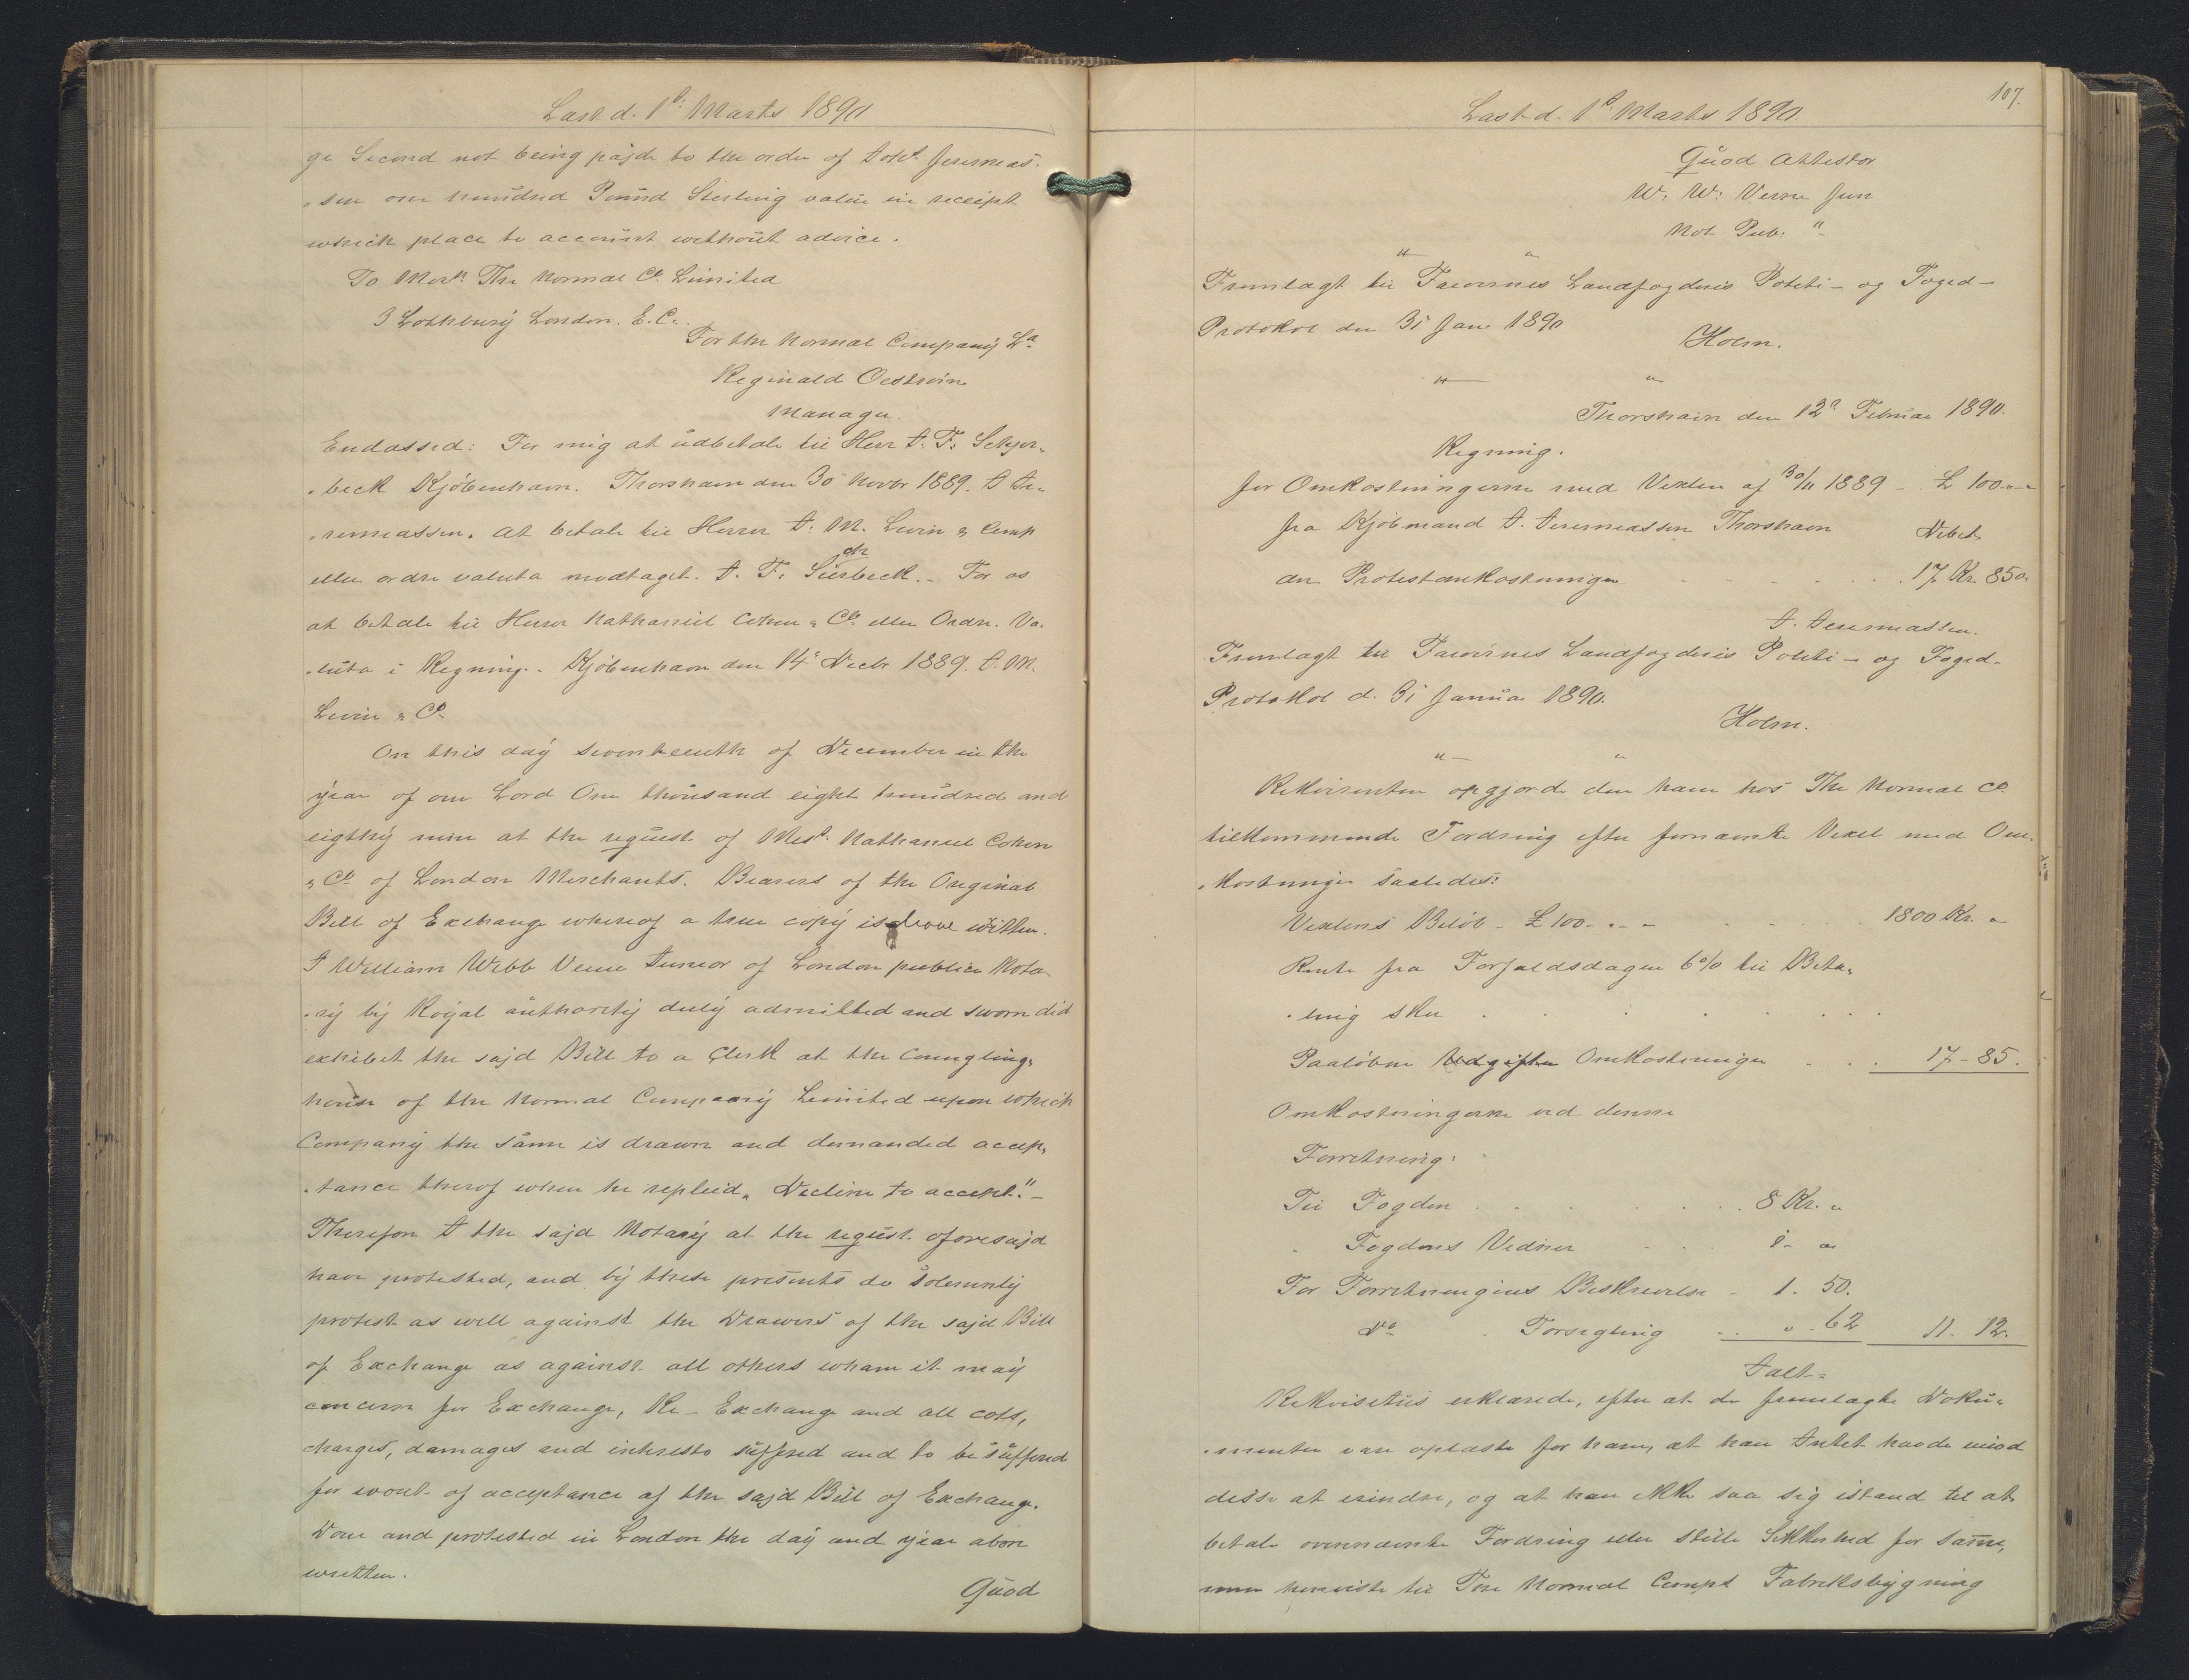 Læst d. 1ste Marts 1890
ge Second not being pajde to the order of Joh. Jeremias-
"sen one hundred Pound Sterling value in receipt
which place to account without advice.
To Mess. The Normal Co. Limited
3 Lothbury London. E. C.
For the Normal Company Ld.
Reginald
Manager.
Endossed: For mig at udbetale til Herr J. F. Schjer-
beck Kjöbenhavn. Thorshavn den 30 Novbr 1889. J Je-
remiassen. At betale til Herrer J. M. Levin & Comp
eller ordre valuta modtaget. J. F. Sierbeck. - For os
at betale til Herrer Nathaniel Cohen & Co. eller Ordre. Va-
luta i Regning. Kjöbenhavn den 14 Decbr 1889. J. M.
Levin & Co.
On this day seventeenth of December in the
year of our Lord One thousand eight hundred and
eigthy nine at the request of Mess. Nathaniel Cohen
& Co of London Merchants. Bearers of the Original
Bill of Exchange whereof a true copy is above written.
I William Webb Venn Junior of London public Nota-
ry by Royal authority duly admitted and sworn did
exhibet the sajd Bill to a Clerk at the Coungting-
house of the Normal Company Limited upon which
Company the same is drawn and demanded accep-
tance therof when he replied „Decline to accept." -
Therefore I the sajd Notary at the request aforesajd
have protested, and by these presents do solemnly
protest as well against the Drawers of the sajd Bill
of Exchange as against all others wham it may
concern for Exchange, Re-Exchange and all cots,
charges, damages and interests suffered and to be suffered
for wont of acceptance of the sajd Bill of Exchange.
Done and protested in London the day and year above
written.
Quod
107.
Læst d. 1ste Marts 1890.
Quod Attestor
W. W: Venn Jun
Not Pub. "
Fremlagt til Færøernes Landfogderis Politi- og Foged-
Protokol den 31 Jan 1890
Holm.
Thorshavn den 12te Februar 1890.
Regning.
for Omkostningerne med Vexlen af 30/11 1889 - £ 100 " - "
fra Kjöbmand J. Jeremiassen Thorshavn
Debet
an Protestomkostninger 17 Kr. 85 ø.
J. Jeremiassen.
Fremlagt til Færøernes Landfogderis Politi- og Foged-
Protokol d. 31 Januar 1890.
Holm.
Rekvirenten opgjorde den ham hos The Normal Co.
tilkommende Fordring efter fornævnte Vexel med Om-
kostninger saaledes:
Vexlens Beløb - £ 100 - " - " 1800 Kr. "
Rente fra Forfaldsdagen 6% til Beta-
ling sker
Paaløbne Udgifter Omkostninger 17 - 85.
Omkostningerne ved denne
Forretning:
Til Fogden 8 Kr. "
" Fogdens Vidner 1 - "
For Forretningens Beskrivelse - 1. 50.
Do " Forsegling " . 62 11. 12.
Ialt =
Rekvisitus erklærede, efter at de fremlagte Doku-
menter vare oplæste for ham, at han Intet havde imod
disse at erindre, og at han ikke saa sig istand til at
betale ovennævnte Fordring eller stille Sikkerhed for samme,
men henviste til The Normal Comps Fabriksbygning